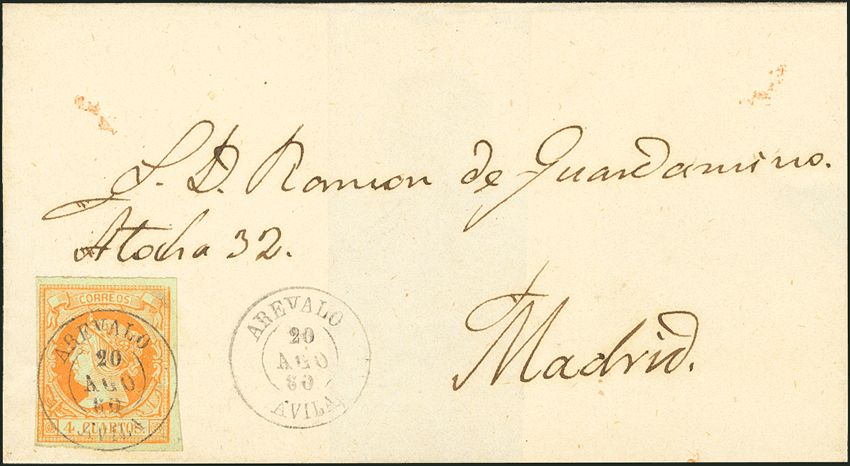 S. D. Ramon de Guardamino.
Atocha 32.
Madrid.
CORREOS
AREVALO
20
AGO
60
AVILA
4 CUARTOS.
AREVALO
20
AGO
60
AVILA